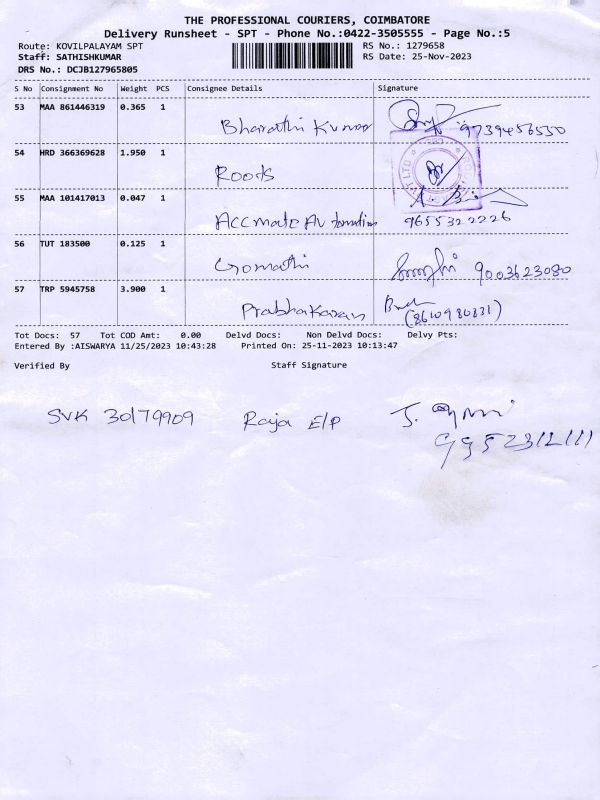 THE PROFESSIONAL COURIERS, COIMBATORE
Delivery Runsheet - SPT - Phone No.:0422-3505555 - Page No.:5
Route: KOVILPALAYAM SPT RS No.: 1279658
Staff: SATHISHKUMAR RS Date: 25-Nov-2023
DRS No.: DCJB127965805
S No Consignment No Weight PCS Consignee Details Signature
53 MAA 861446319 0.365 1
Bharathi Kumar 9739456550
54 HRD 366369628 1.950 1
Roods
55 MAA 101417013 0.047 1
Accmate Automation 9655322226
56 TUT 183500 0.125 1
Gomathi 9003623080
57 TRP 5945758 3.900 1
Prabhakaran (8610980831)
Tot Docs: 57 Tot COD Amt: 0.00 Delvd Docs: Non Delvd Docs: Delvy Pts:
Entered By :AISWARYA 11/25/2023 10:43:28 Printed On: 25-11-2023 10:13:47
Verified By Staff Signature
SVK 30179909 Raja E/P
9952312111